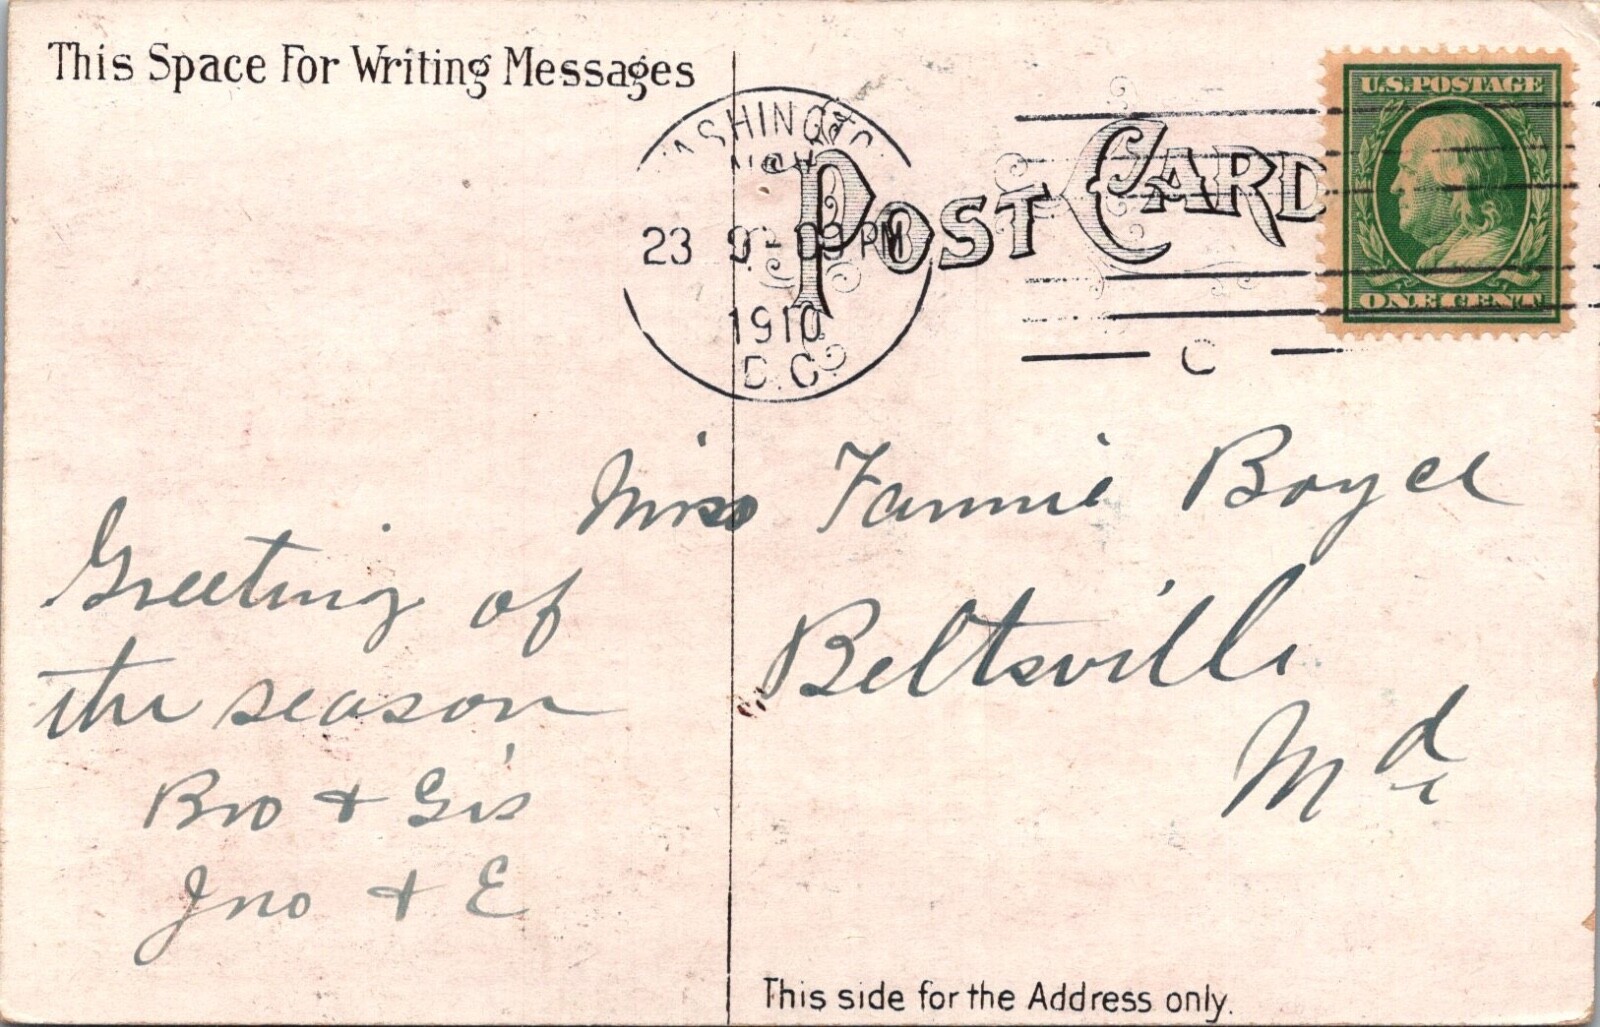 This Space For Writing Messages
POST CARD
WASHINGTO
23 9 - 03 PM
1910
D.C.
U.S. POSTAGE
ONE CENT
C
Miss Fannie Boyce
Beltsville
Md
Greeting of
the season
Bro + Sis
Jno + E
This side for the Address only.